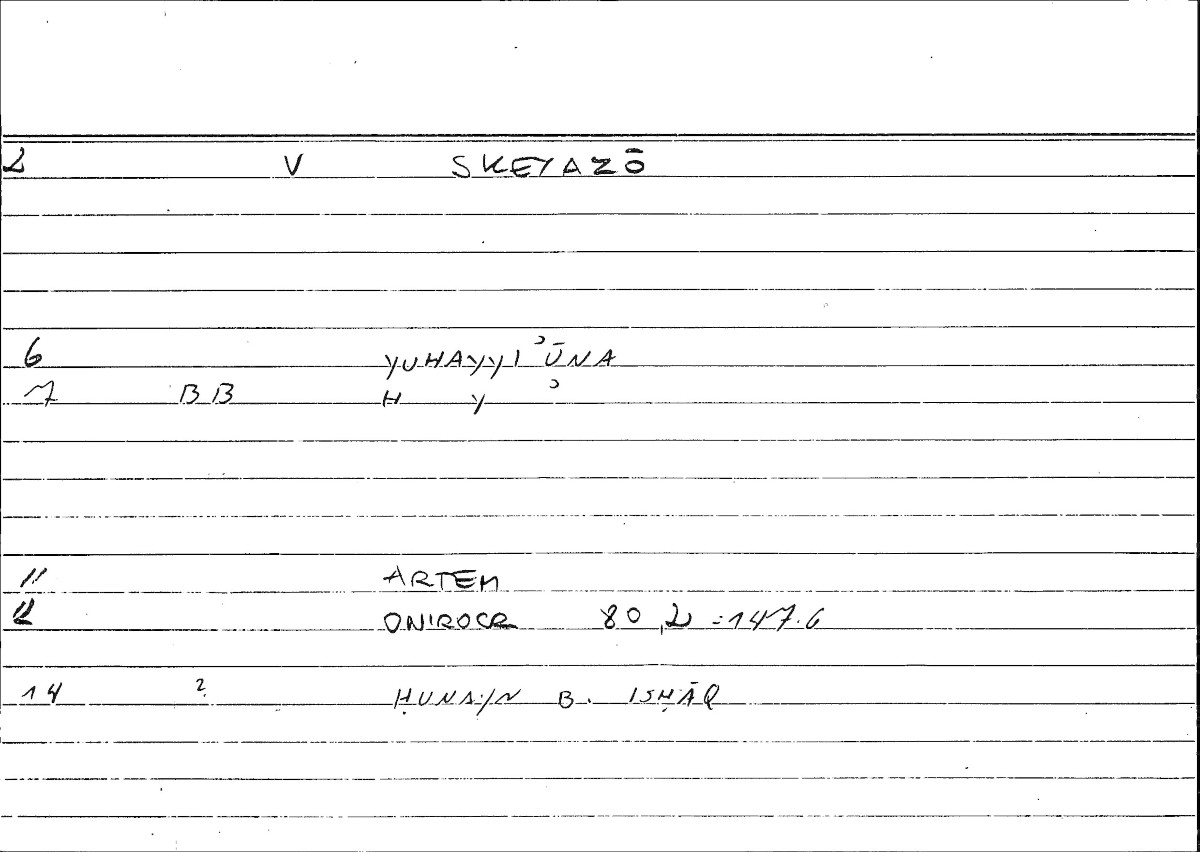 2 V SKEYAZŌ
6 YUHAYYIʾŪNA
7 BB H Y ʾ
11 ARTEM
12 ONIROCR 80,2 = 147.6
14 ? ḤUNAYN B. ISḤĀQ